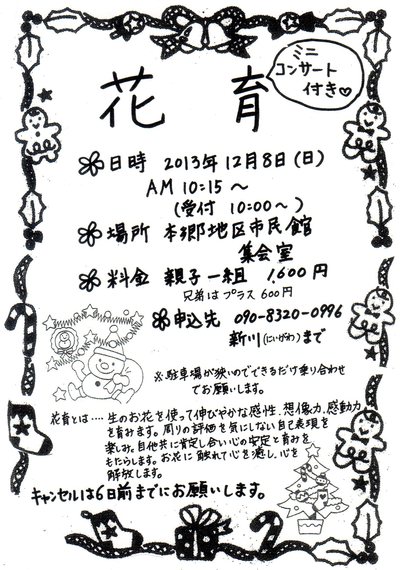 花育
ミニ
コンサート
付き♡
日時 2013年12月8日(日)
AM 10:15～
(受付 10:00～)
場所 本郷地区市民館
集会室
料金 親子一組 1,600円
兄弟はプラス600円
申込先 090-8320-0996
新川(にいがわ)まで
※駐車場が狭いのでできるだけ乗り合わせ
でお願いします。
花育とは‥‥生のお花を使って伸びやかな感性、想像力、感動力
を育みます。周りの評価を気にしない自己表現を
楽しみ。自他共に肯定し合い心の安定と育みを
もたらします。お花に触れて心を癒し、心を
解放します。
キャンセルは6日前までにお願いします。